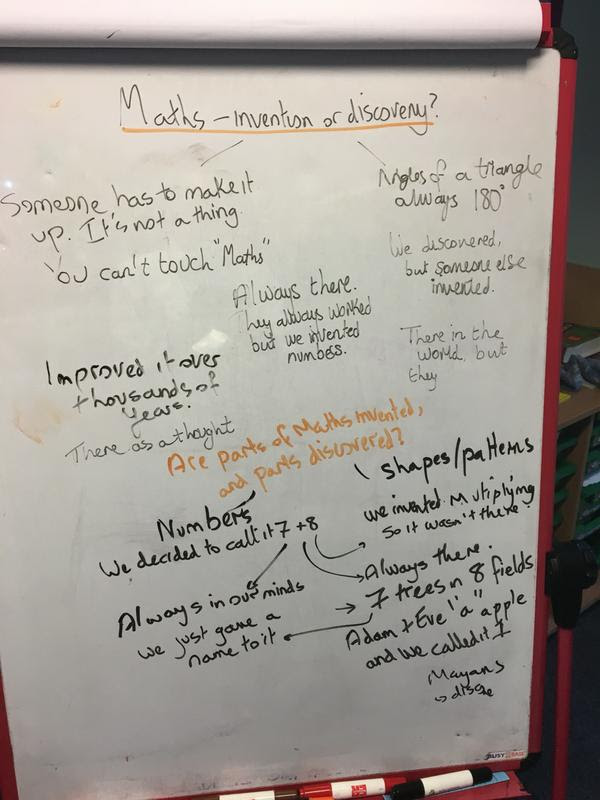 Maths - invention or discovery?
Someone has to make it
up. It's not a thing.
You can't touch "Maths"
Angles of a triangle
always 180°
We discovered,
but someone else
invented.
Always there.
They always worked
but we invented
numbers.
There in the
world, but
they
Improved it over
thousands of
years.
There as a thought
Are parts of Maths invented,
and parts discovered?
Numbers
We decided to call it 7 + 8
Always in our minds
we just gave a
name to it
shapes/patterns
we invented Multiplying
so it wasn't there.
Always there.
7 trees in 8 fields
Adam + Eve "a" apple
and we called it 1
Mayans
BUSY BASE